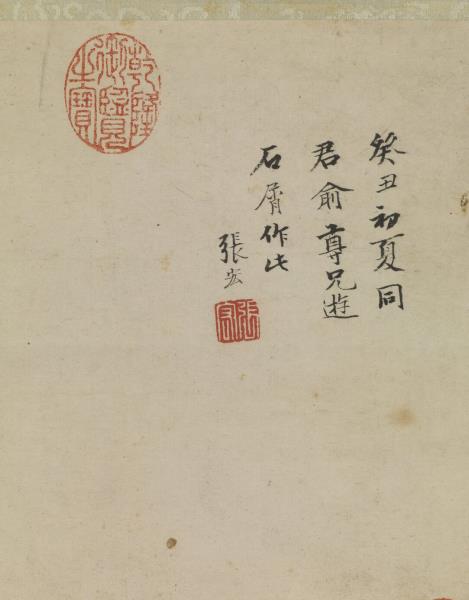 癸丑初夏同
君俞尊兄遊
石屑作此
張宏
張宏
乾隆
御覽
之寶